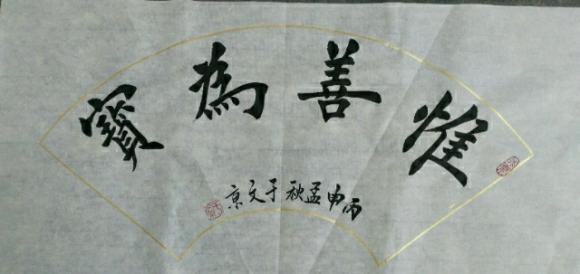 惟善為寶
丙申孟秋于文京